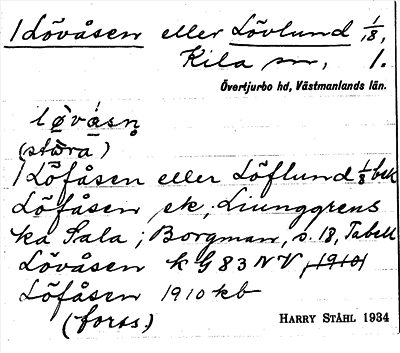 1 Lövåsen eller Lövlund 1/8,
Kila sn, 1.
Övertjurbo hd, Västmanlands län.
løvåsn
(stora)
1 Löfåsen eller Löflund 1/8 bek
Löfåsen ek, Ljunggrens
ka Sala; Borgman, s. 18, Tabell
Lövåsen k G 83 NV, 1910
Löfåsen 1910 kb
(forts.)
HARRY STÅHL 1934